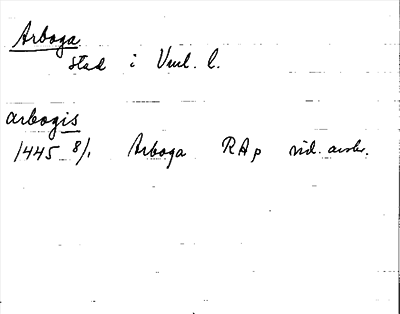 Arboga
stad i Vml. l.
arbogis
1445 8/1 Arboga RAp vid. avskr.